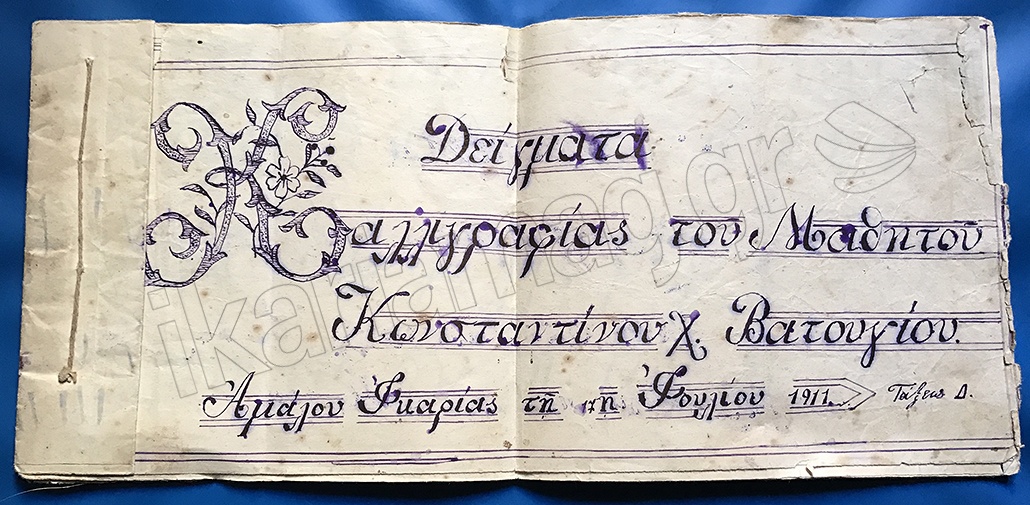 Δείγματα
Καλλιγραφίας του Μαθητού
Κωνσταντίνου Χ. Βατουγίου.
Ἀμάλου Ἰκαρίας τῇ 17ῃ Ἰουλίου 1911 Τάξεως Δ.
ikariamag.gr